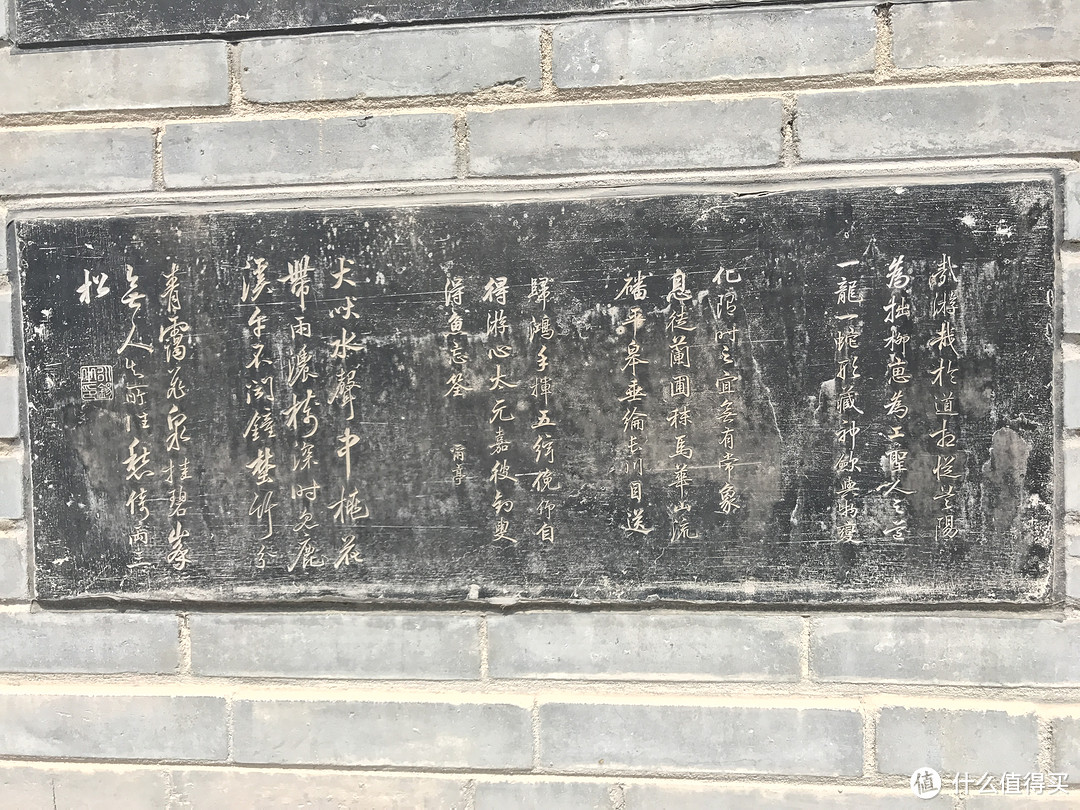 哉游哉於道相從首陽
為拙柳惠為工聖人之道
一龍一蛇形藏神歛與物變
化隨時之宜無有常象
息徒蘭圃秣馬華山流
磻平皋垂綸長川目送
歸鴻手揮五絃俛仰自
得游心太元嘉彼釣叟
得魚忘筌
犬吠水聲中桃花
帶雨濃樹深時見鹿
溪午不聞鐘埜竹分
青靄飛泉挂碧峯
無人知所住愁倚兩三
松
值 什么值得买